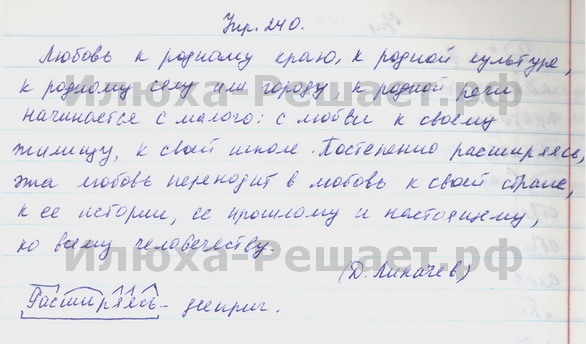 Упр. 240.
Любовь к родному краю, к родной культуре,
к родному селу или городу, к родной речи
начинается с малого: с любви к своему
жилищу, к своей школе. Постепенно расширяясь,
эта любовь переходит в любовь к своей стране,
к ее истории, ее прошлому и настоящему,
ко всему человечеству.
(Д. Лихачев)
Расширяясь - дееприч.
Илюха-Решает.рф
Илюха-Решает.рф